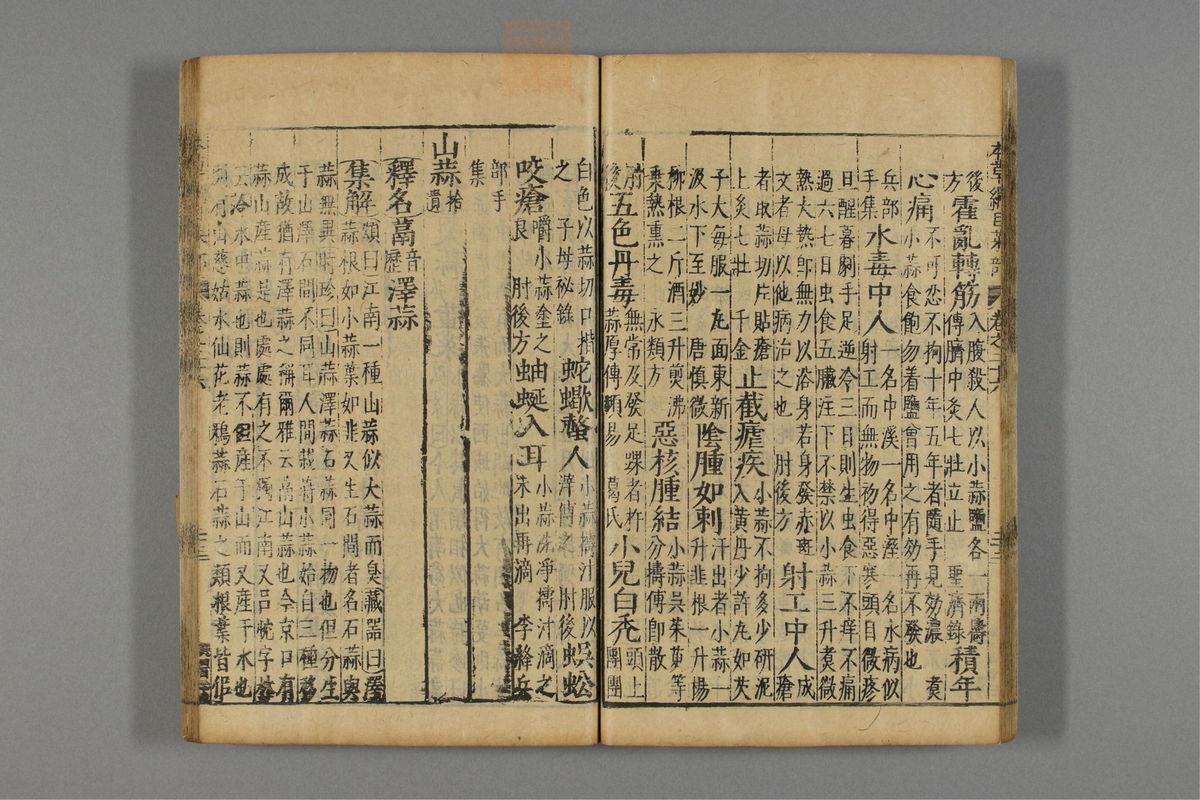 本草綱目菜部 卷之二十六
後方 霍亂轉筋 入腹殺人以小蒜鹽各一兩擣傅臍中灸七壯立止 聖濟錄 積年
心痛 不可忍不拘十年五年者隨手見効濃煑小蒜食飽勿着鹽曾用之有効再不發也
兵部手集 水毒中人 一名中溪一名中溼一名水病似射工而無物初得惡寒頭目微疼
旦醒暮劇手足逆冷三日則生虫食下不痒不痛
過六七日虫食五臟注下不禁以小蒜三升煮微
熱大熱卽無力以浴身若身發赤斑
文者毋以他病治之也 肘後方 射工中人 成瘡
者取蒜切片貼瘡上灸七壯 千金 止截瘧疾 小蒜不拘多少研泥入黃丹少許丸如芡
子大每服一丸面東新汲水下至妙 唐慎微 陰腫如刺 汗出者小蒜一升韭根一升楊
柳根二斤酒三升煎沸乗熱熏之 永類方 惡核腫結 小蒜吳茱萸等分擣傅卽散
肘後 五色丹毒 無常及發足踝者杵蒜厚傅頻易 葛氏 小兒白禿 頭上團團
白色以蒜切口揩之 子母祕錄 蛇蠍螫人 小蒜擣汁服以滓傅之 肘後 蜈蚣
咬瘡 嚼小蒜塗之良 肘後方 蚰蜒入耳 小蒜洗淨擣汁滴之未出再滴 李絳兵
部手集
山蒜 拾遺
釋名 蒚 音歷 澤蒜
集解 頌曰江南一種山蒜似大蒜而臭藏器曰澤蒜根如小蒜葉如韭又生石間者名石蒜與
蒜無異時珍曰山蒜澤蒜石蒜同一物也但分生
于山澤石間不同耳人間栽蒔小蒜始自三種移
成故猶有澤蒜之稱爾雅云蒚山蒜也今京口有
蒜山産蒜是也處處有之不獨江南又呂忱字林
云䓗水中蒜也則蒜不但産于山而又産于水也
別有山慈姑水仙花老鴉蒜石蒜之類根葉皆似